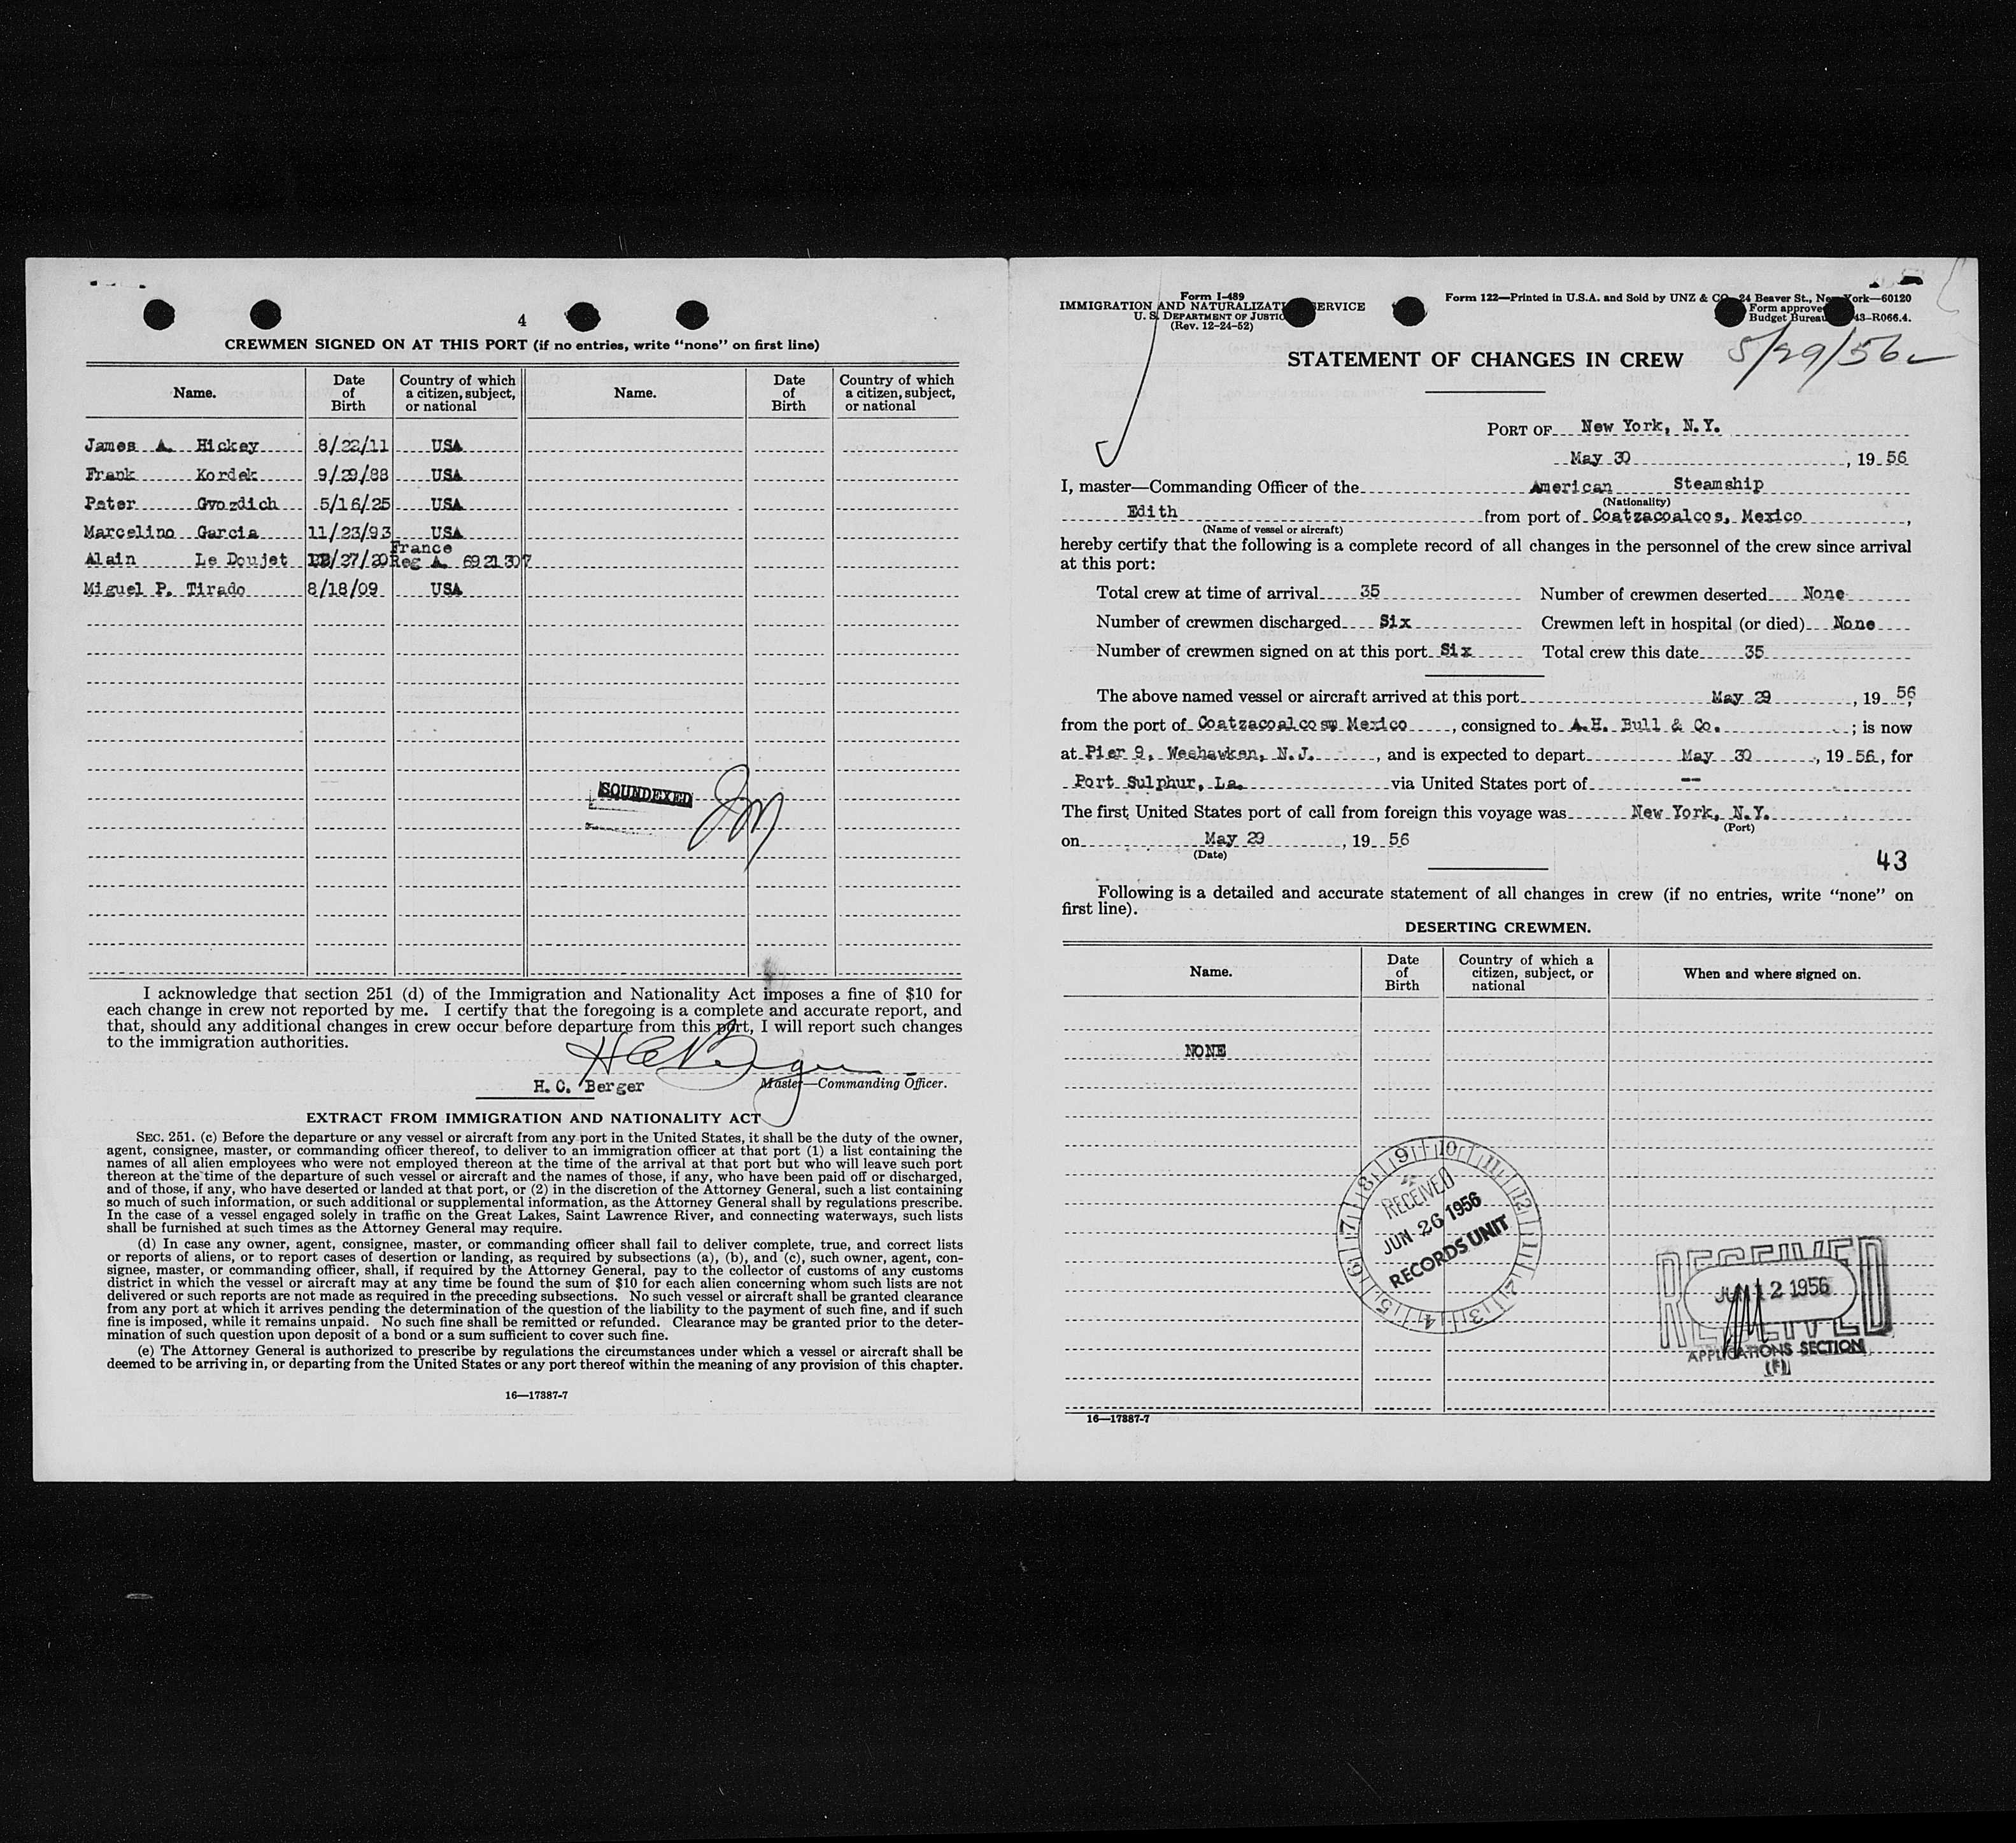 4
CREWMEN SIGNED ON AT THIS PORT (if no entries, write “none” on first line)
Name. Date of Birth Country of which a citizen, subject, or national Name. Date of Birth Country of which a citizen, subject, or national
James A. Hickey 8/22/11 USA
Frank Kordek 9/29/88 USA
Peter Gvozdich 5/16/25 USA
Marcelino Garcia 11/23/93 USA
France
Alain Le Doujet /27/20 Reg A. 6921307
Miguel P. Tirado 8/18/09 USA
SOUNDEXED
JM
I acknowledge that section 251 (d) of the Immigration and Nationality Act imposes a fine of $10 for
each change in crew not reported by me. I certify that the foregoing is a complete and accurate report, and
that, should any additional changes in crew occur before departure from this port, I will report such changes
to the immigration authorities.
H C Berger
H. C. Berger Master—Commanding Officer.
EXTRACT FROM IMMIGRATION AND NATIONALITY ACT
SEC. 251. (c) Before the departure or any vessel or aircraft from any port in the United States, it shall be the duty of the owner,
agent, consignee, master, or commanding officer thereof, to deliver to an immigration officer at that port (1) a list containing the
names of all alien employees who were not employed thereon at the time of the arrival at that port but who will leave such port
thereon at the time of the departure of such vessel or aircraft and the names of those, if any, who have been paid off or discharged,
and of those, if any, who have deserted or landed at that port, or (2) in the discretion of the Attorney General, such a list containing
so much of such information, or such additional or supplemental information, as the Attorney General shall by regulations prescribe.
In the case of a vessel engaged solely in traffic on the Great Lakes, Saint Lawrence River, and connecting waterways, such lists
shall be furnished at such times as the Attorney General may require.
(d) In case any owner, agent, consignee, master, or commanding officer shall fail to deliver complete, true, and correct lists
or reports of aliens, or to report cases of desertion or landing, as required by subsections (a), (b), and (c), such owner, agent, con-
signee, master, or commanding officer, shall, if required by the Attorney General, pay to the collector of customs of any customs
district in which the vessel or aircraft may at any time be found the sum of $10 for each alien concerning whom such lists are not
delivered or such reports are not made as required in the preceding subsections. No such vessel or aircraft shall be granted clearance
from any port at which it arrives pending the determination of the question of the liability to the payment of such fine, and if such
fine is imposed, while it remains unpaid. No such fine shall be remitted or refunded. Clearance may be granted prior to the deter-
mination of such question upon deposit of a bond or a sum sufficient to cover such fine.
(e) The Attorney General is authorized to prescribe by regulations the circumstances under which a vessel or aircraft shall be
deemed to be arriving in, or departing from the United States or any port thereof within the meaning of any provision of this chapter.
16—17387-7
Form I-489
IMMIGRATION AND NATURALIZATI ERVICE
U. S. DEPARTMENT OF JUSTIC
(Rev. 12-24-52)
Form 122—Printed in U.S.A. and Sold by UNZ & CO 24 Beaver St., New York—60120
Form approve
Budget Bureau 43-R066.4.
5/29/56
STATEMENT OF CHANGES IN CREW
PORT OF New York, N.Y.
May 30, 19 56
I, master—Commanding Officer of the American Steamship
(Nationality)
Edith from port of Coatzacoalcos, Mexico,
(Name of vessel or aircraft)
hereby certify that the following is a complete record of all changes in the personnel of the crew since arrival
at this port:
Total crew at time of arrival 35 Number of crewmen deserted None
Number of crewmen discharged Six Crewmen left in hospital (or died) None
Number of crewmen signed on at this port Six Total crew this date 35
The above named vessel or aircraft arrived at this port May 29, 19 56,
from the port of Coatzacoalcos, Mexico, consigned to A.H. Bull & Co. ; is now
at Pier 9, Weehawken, N.J., and is expected to depart May 30, 19 56, for
Port Sulphur, La. via United States port of --
The first United States port of call from foreign this voyage was New York, N.Y.
(Port)
on May 29, 19 56
(Date)
43
Following is a detailed and accurate statement of all changes in crew (if no entries, write “none” on
first line).
DESERTING CREWMEN.
Name. Date of Birth Country of which a citizen, subject, or national When and where signed on.
NONE
9 10 11 12 1 2 3 4 5 6 7 8
RECEIVED
JUN 26 1956
RECORDS UNIT
RECEIVED
JUN 12 1956
APPLICATIONS SECTION
16—17387-7